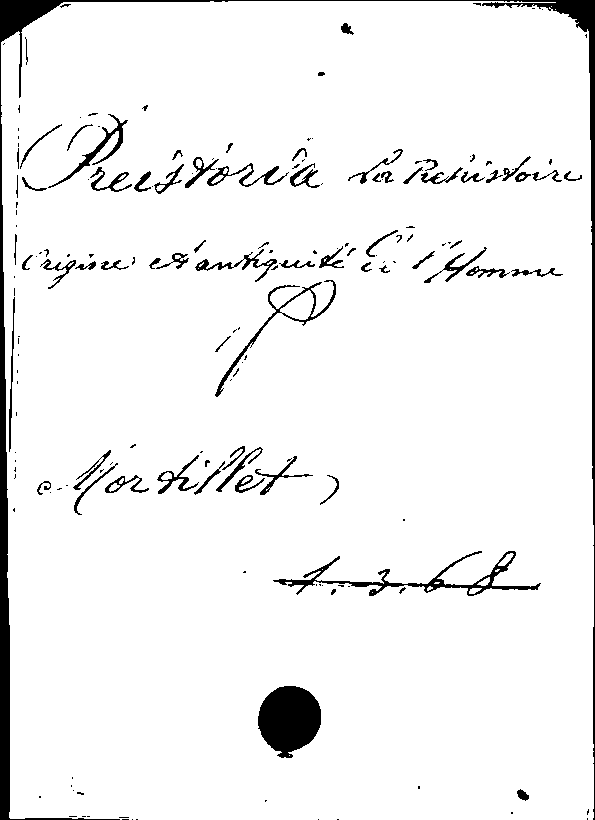 Preistoria La Prehistoire
Origine et antiquité de l'Homme
Mortillet
1.3.68